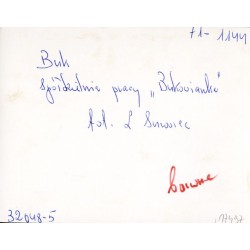 71-1144
Buk
Spółdzielnia pracy „Bukowianka"
fot. L Surowiec
32048-5
17497